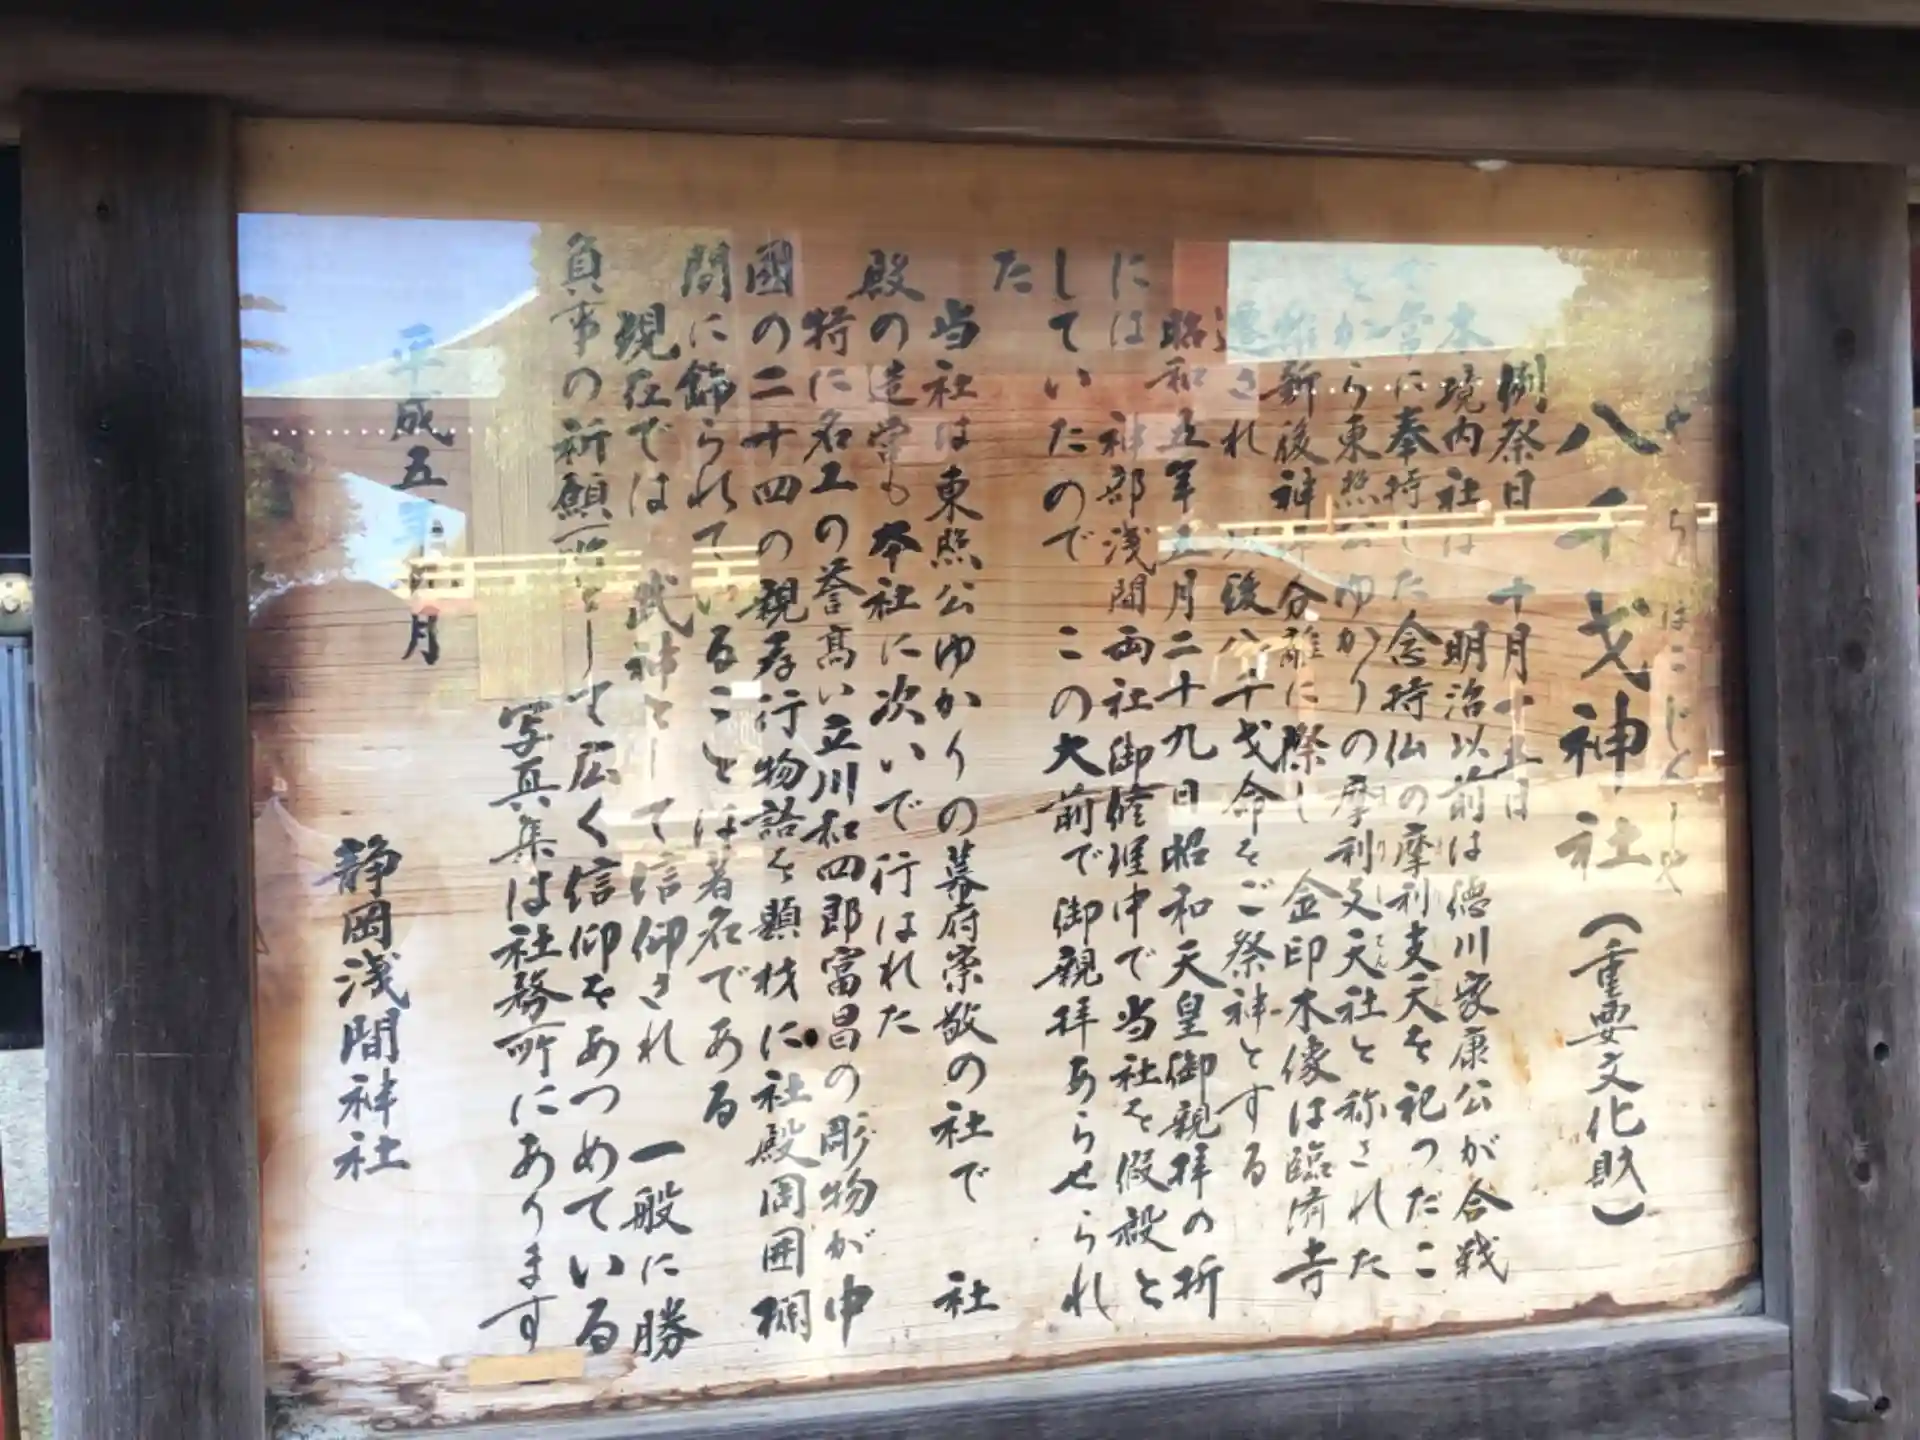 八千戈神社(重要文化財)
例祭日 十月十五日
本境内社は 明治以前は徳川家康公が合戦
に奉持した念持仏の摩利支天を祀ったこ
とから東照公ゆかりの摩利支天社と称された
維新後神 分離に際し 金印木像は臨済寺
に遷され 以後八千戈命をご祭神とする
昭和五年五月二十九日昭和天皇御親拝の折
には 神部浅間両社御修理中で当社を假殿と
していたのでこの大前で御親拝あらせられ
た
当社は東照公ゆかりの幕府崇敬の社で 社
殿の造営も本社に次いで行はれた
特に名工の誉高い立川和四郎富昌の彫物が中
國の二十四の親孝行物語を題材に社殿周囲欄
間に飾られていることは著名である
現在では 武神として信仰され 一般に勝
負事の祈願所として広く信仰をあつめている
写真集は社務所にあります
平成五年 月
静岡浅間神社